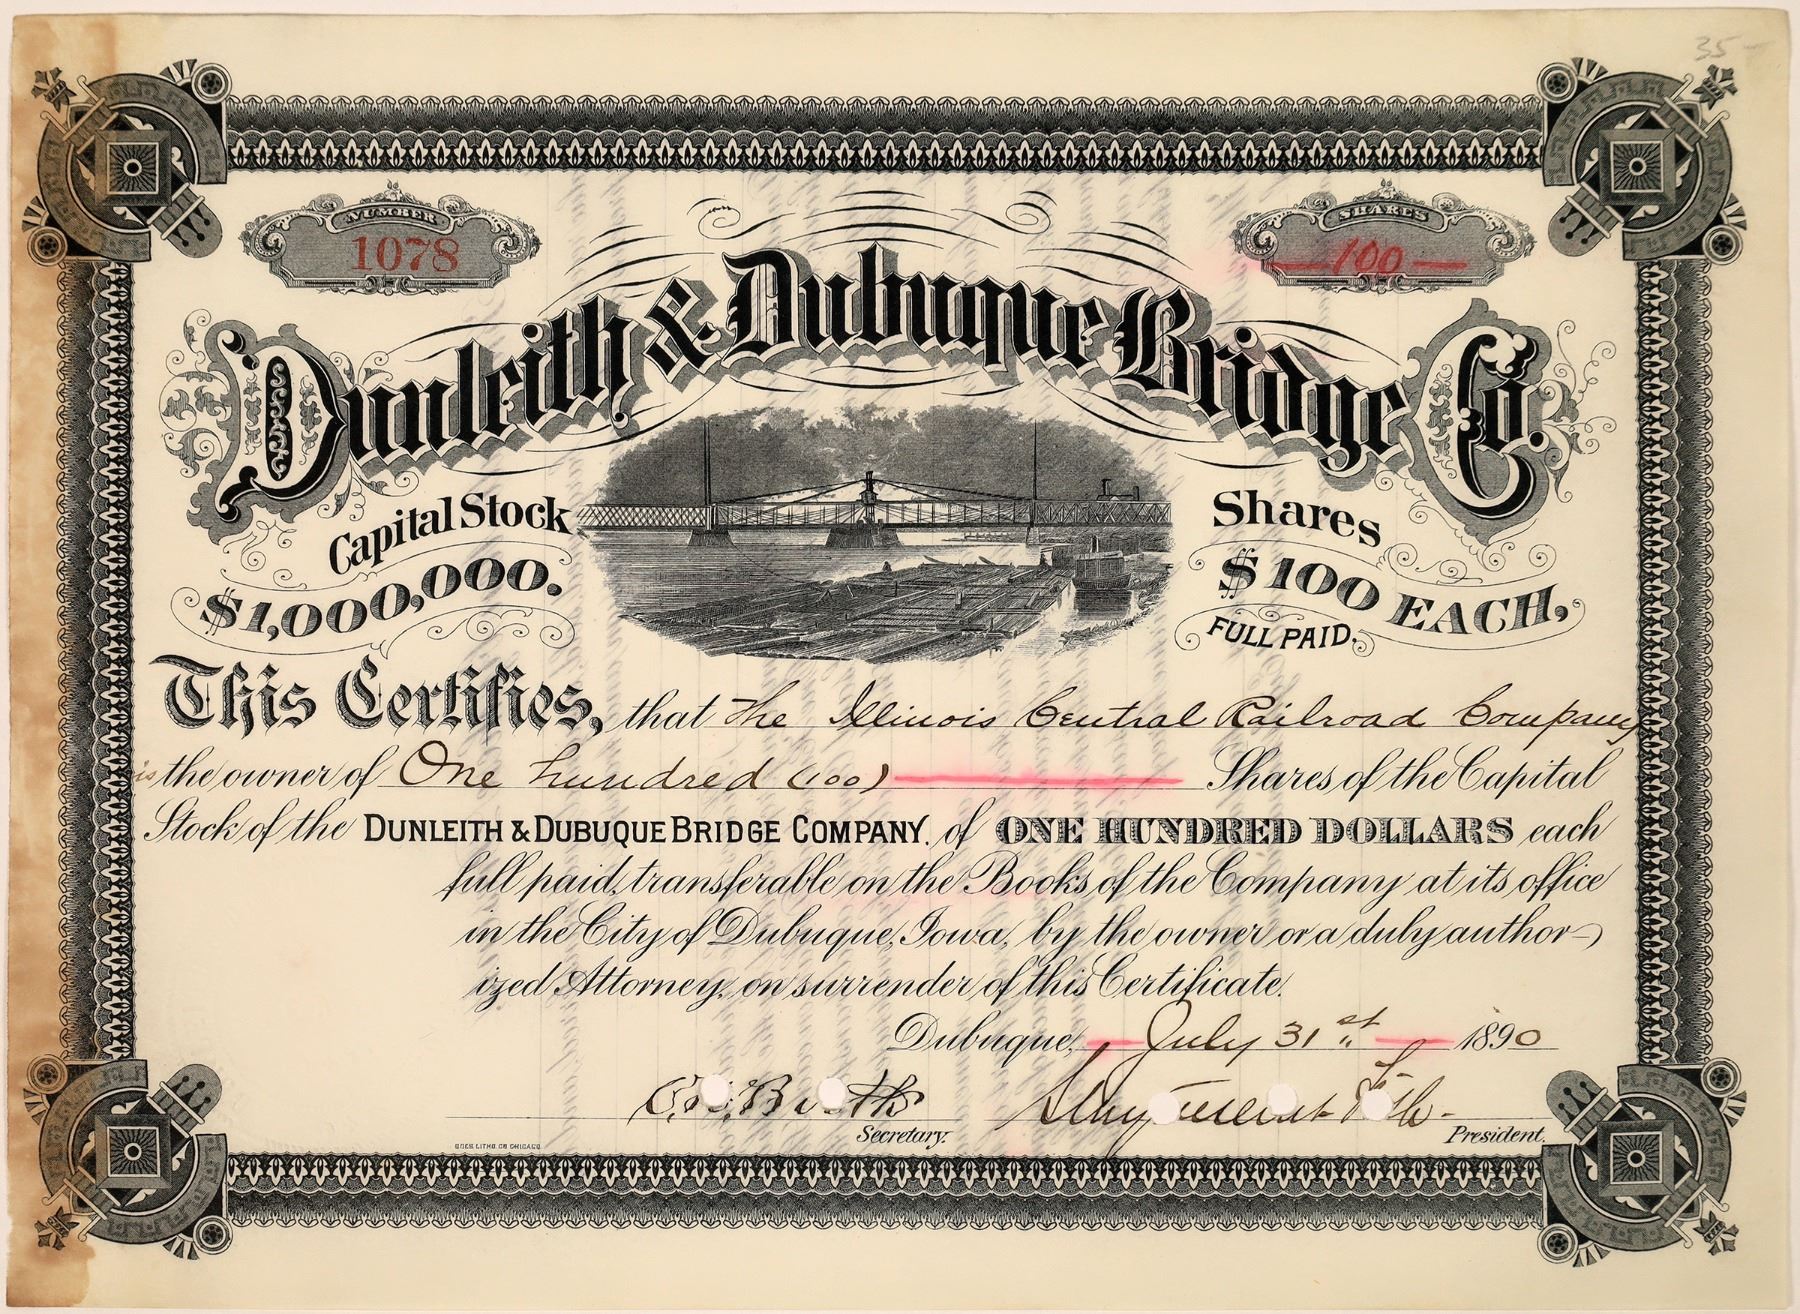 35
NUMBER
1078
SHARES
100
Dunleith & Dubuque Bridge Co.
Capital Stock
$1,000,000.
Shares
$100 EACH,
FULL PAID.
This Certifies, that The Illinois Central Railroad Company
is the owner of One hundred (100) Shares of the Capital
Stock of the DUNLEITH & DUBUQUE BRIDGE COMPANY. of ONE HUNDRED DOLLARS each
full paid, transferable on the Books of the Company at its office
in the City of Dubuque, Iowa, by the owner or a duly author-
ized Attorney, on surrender of this Certificate.
Dubuque, July 31st 1890
Secretary.
President.
GOES LITHO. CO. CHICAGO.